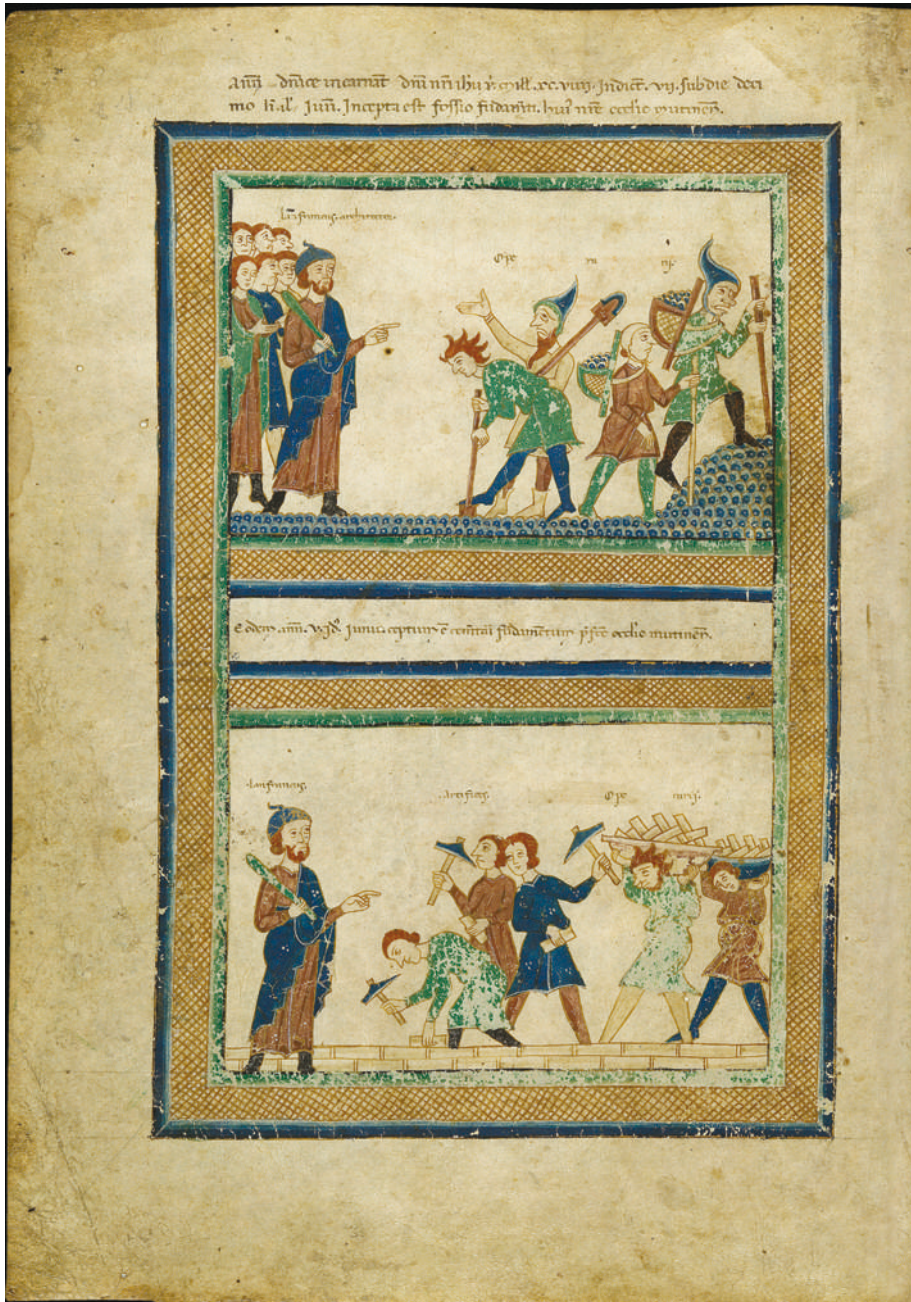 Anni dnice incarnat dni nri ihu x̄ mill. xc. viiij. Indict. vij. sub die deci
mo kl iunii. Incepta est fossio fūdam̄ti. hui' nr̄e ecclie mutinen̄.
Lanfrancus architector.
Ope ra rij.
Eodem anni. v. id. Junii. ceptum ē cemtari fūdamētum p̄fate ecclie mutinen̄.
Lanfrancus.
Artifices.
Ope rarij.